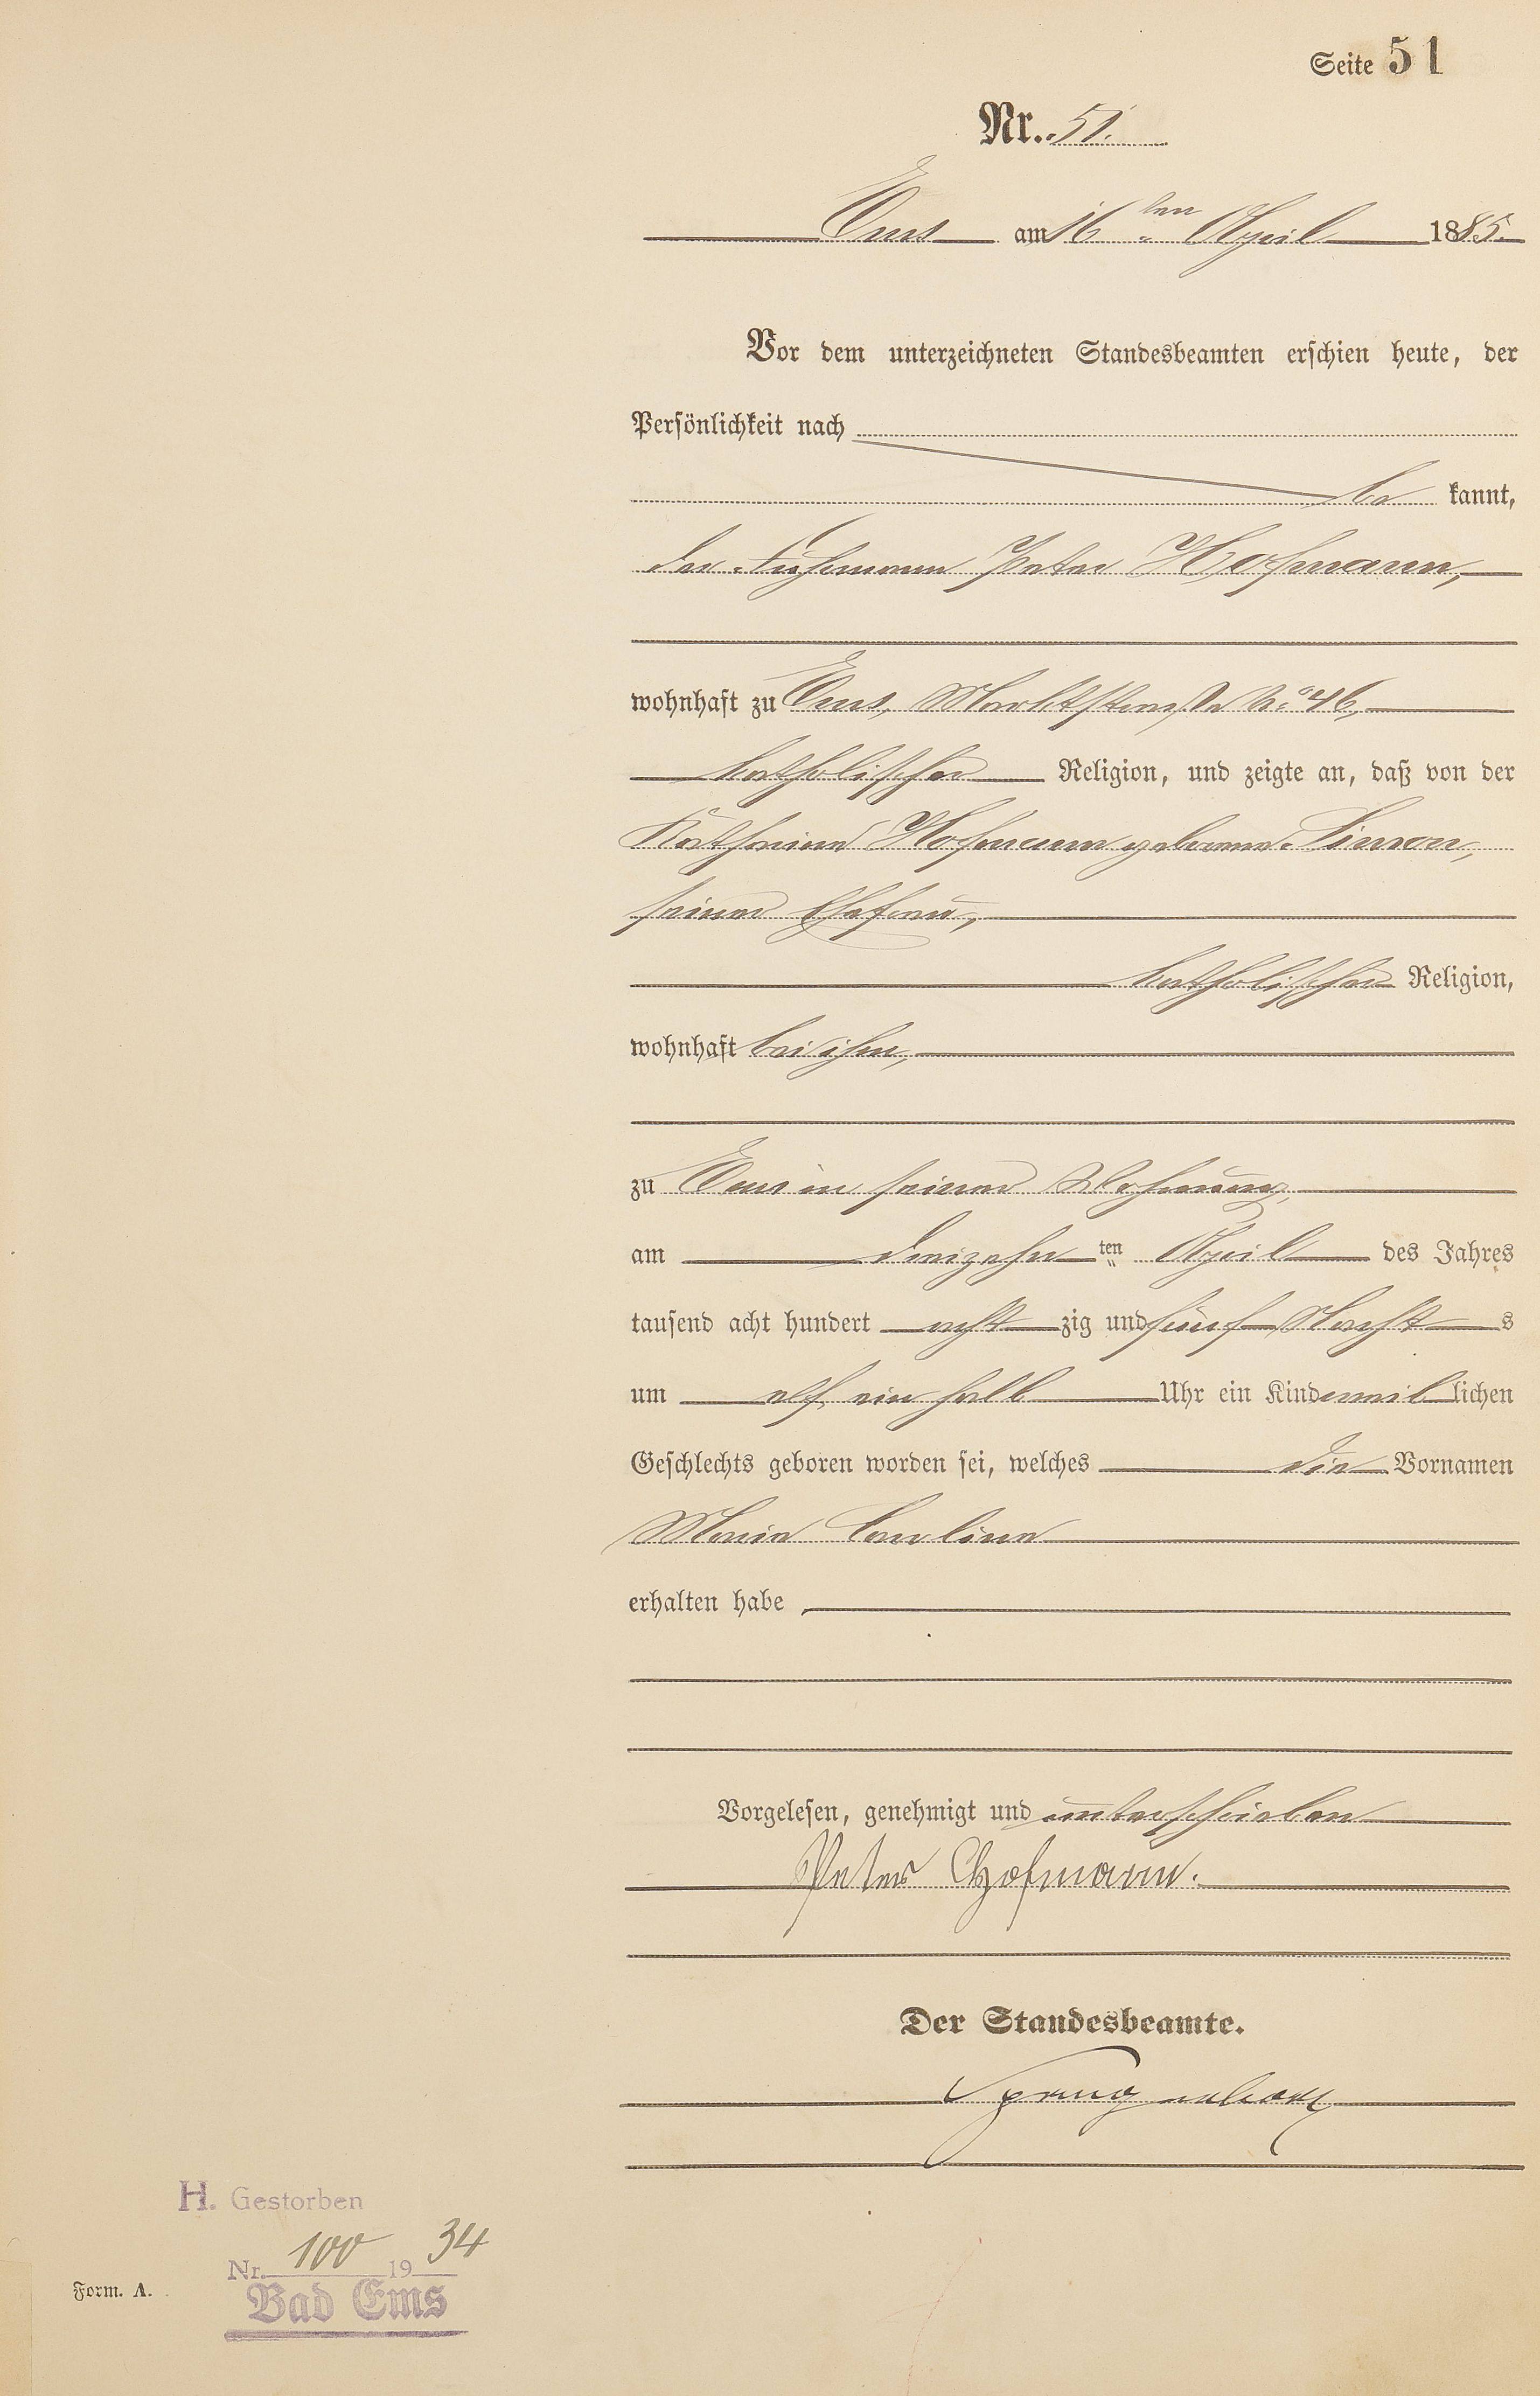 Seite 51
Nr. 51.
Ems am 16ten April 1885.
Vor dem unterzeichneten Standesbeamten erschien heute, der
Persönlichkeit nach
be kannt,
der Fuhrmann Peter Hofmann,
wohnhaft zu Ems, Marktstraße No 46,
katholischer Religion, und zeigte an, daß von der
Katharina Hofmann geborene Simon,
seiner Ehefrau,
katholischer Religion,
wohnhaft bei ihm,
zu Ems in seiner Wohnung,
am dreizehn ten April des Jahres
tausend acht hundert acht zig und fünf Nacht s
um elf ein halb Uhr ein Kind weib lichen
Geschlechts geboren worden sei, welches die Vornamen
Maria Carolina
erhalten habe
Vorgelesen, genehmigt und unterschrieben
Peter Hofmann.
Der Standesbeamte.
H. Gestorben
Nr. 100 1934
Bad Ems
Form. A.